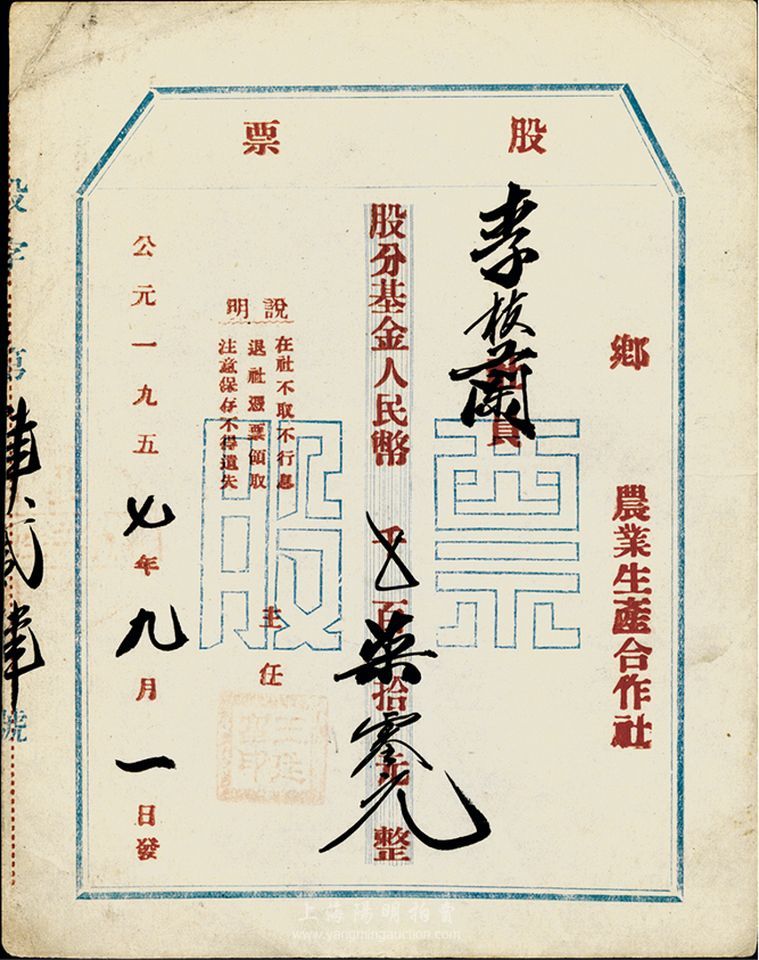 股票
鄉 農業生產合作社
李枝蘭社員
股分基金人民幣 千 百柒拾零元整
說明
在社不取不行息
退社憑票領取
注意保存不得遺失
主任
公元一九五七年九月一日發
股字第 號
股票
上海陽明拍賣
www.yangmingauction.com